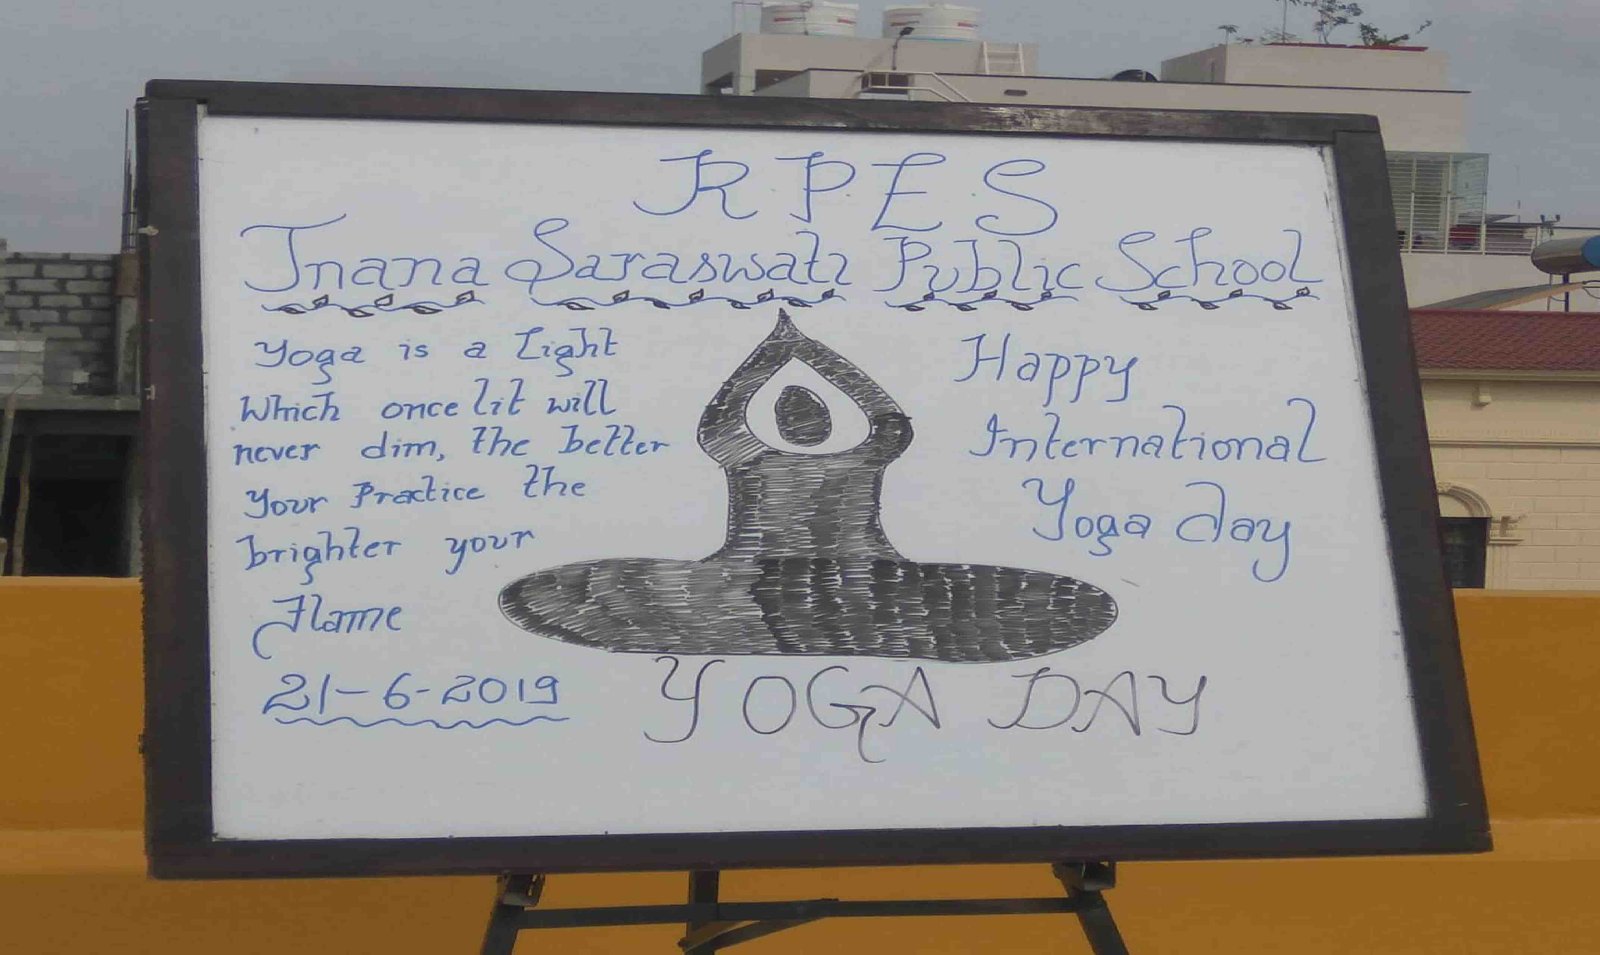 R P E S
Jnana Saraswati Public School
Yoga is a Light
Which once lit will
never dim, the better
Your Practice the
brighter your
Flame
21-6-2019
Happy
International
Yoga day
YOGA DAY